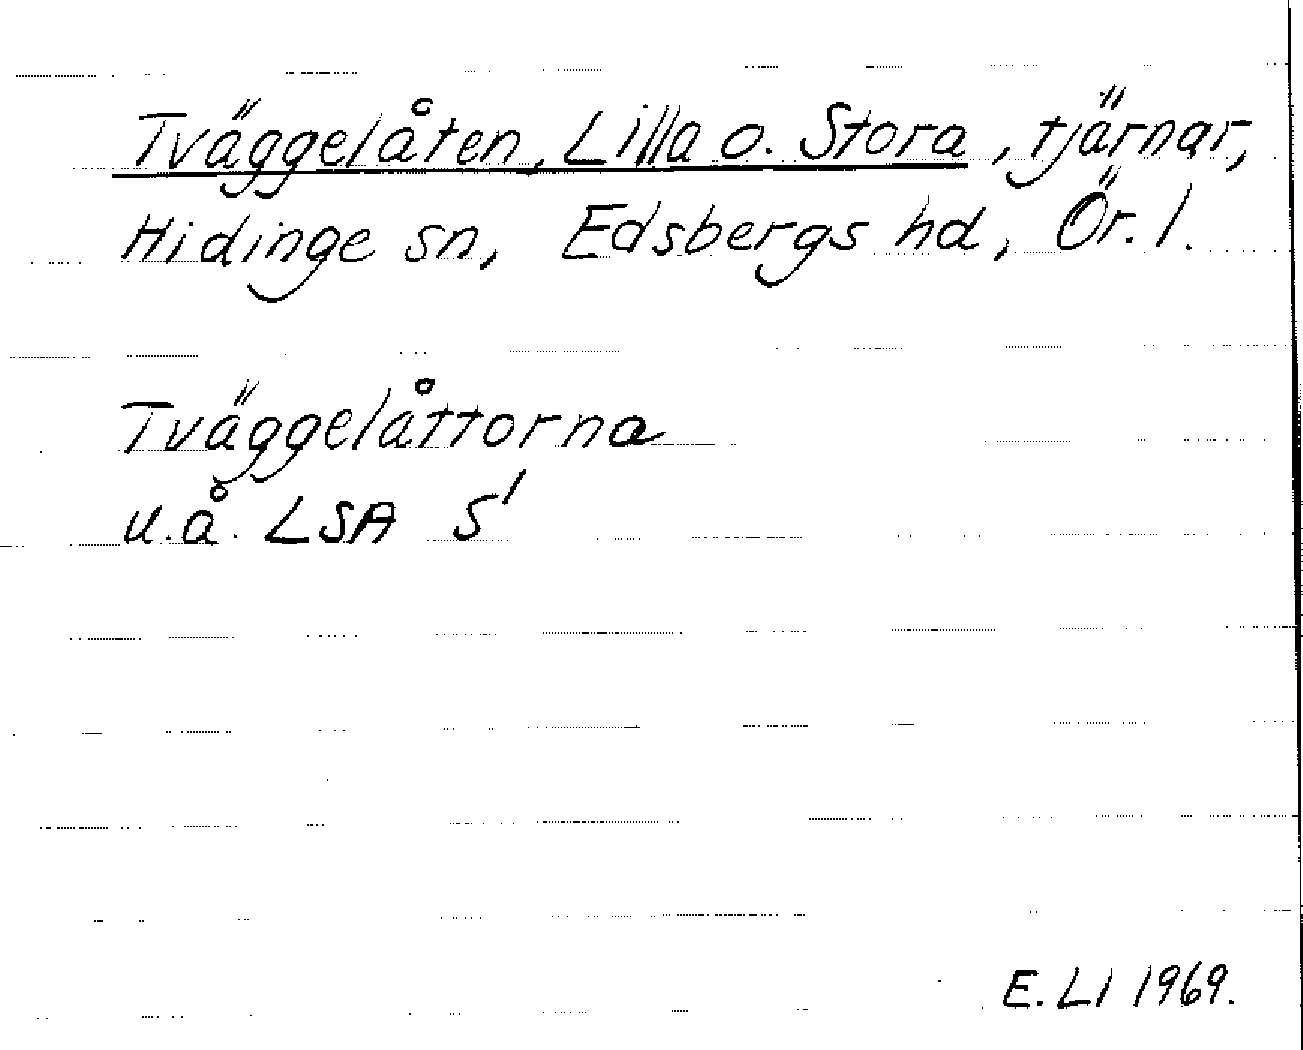 Tväggelåten, Lilla o. Stora, tjärnar,
Hidinge sn, Edsbergs hd, Ör. l.
Tväggelåttorna
u.å. LSA S'
E. LI 1969.